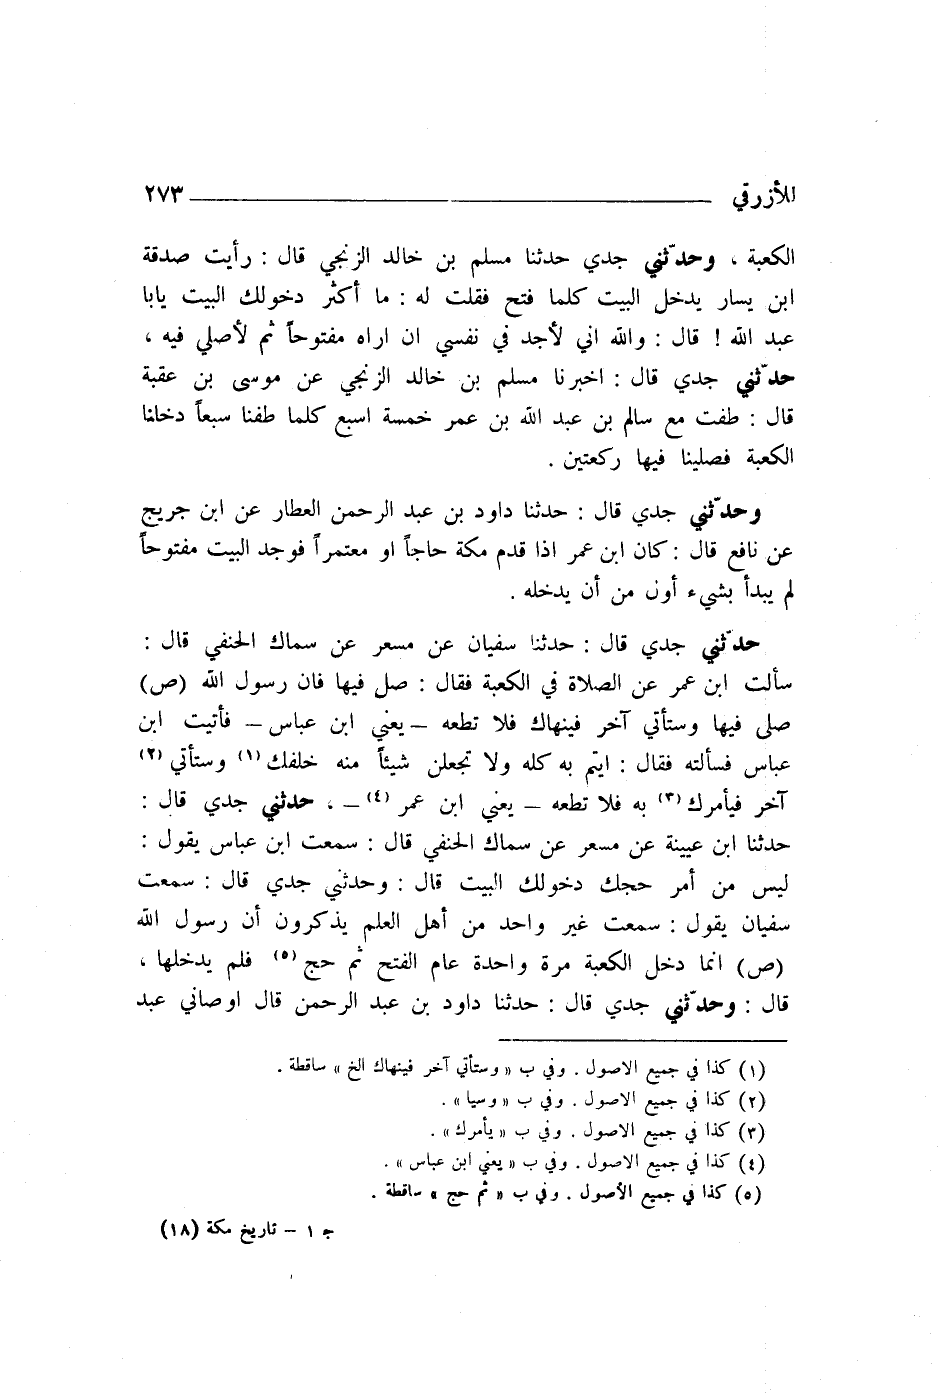 للأزرقي ٢٧٣
الكعبة ، وحدّثني جدي حدثنا مسلم بن خالد الزنجي قال : رأيت صدقة
ابن يسار يدخل البيت كلما فتح فقلت له : ما أكثر دخولك البيت يابا
عبد الله ! قال : والله اني لأجد في نفسي ان اراه مفتوحاً ثم لأصلي فيه ،
حدّثني جدي قال : اخبرنا مسلم بن خالد الزنجي عن موسى بن عقبة
قال : طفت مع سالم بن عبد الله بن عمر خمسة اسبع كلما طفنا سبعاً دخلنا
الكعبة فصلينا فيها ركعتين .
وحدّثني جدي قال : حدثنا داود بن عبد الرحمن العطار عن ابن جريج
عن نافع قال : كان ابن عمر اذا قدم مكة حاجاً او معتمراً فوجد البيت مفتوحاً
لم يبدأ بشيء أول من أن يدخله .
حدّثني جدي قال : حدثنا سفيان عن مسعر عن سماك الحنفي قال :
سألت ابن عمر عن الصلاة في الكعبة فقال : صل فيها فان رسول الله (ص)
صلى فيها وستأتي آخر فينهاك فلا تطعه – يعني ابن عباس – فأتيت ابن
عباس فسألته فقال : ايتم به كله ولا تجعلن شيئاً منه خلفك (١) وستأتي (٢)
آخر فيأمرك (٣) به فلا تطعه – يعني ابن عمر (٤) – ، حدثني جدي قال :
حدثنا ابن عيينة عن مسعر عن سماك الحنفي قال : سمعت ابن عباس يقول :
ليس من أمر حجك دخولك البيت قال : وحدثني جدي قال : سمعت
سفيان يقول : سمعت غير واحد من أهل العلم يذكرون أن رسول الله
(ص) انما دخل الكعبة مرة واحدة عام الفتح ثم حج (٥) فلم يدخلها ،
قال : وحدّثني جدي قال : حدثنا داود بن عبد الرحمن قال اوصاني عبد
(١) كذا في جميع الاصول . وفي ب « وستأتي آخر فينهاك الخ » ساقطة .
(٢) كذا في جميع الاصول . وفي ب « وسيا » .
(٣) كذا في جميع الاصول . وفي ب « يأمرك » .
(٤) كذا في جميع الاصول . وفي ب « يعني ابن عباس » .
(٥) كذا في جميع الأصول . وفي ب « ثم حج » ساقطة .
ج ١ – تاريخ مكة (١٨)